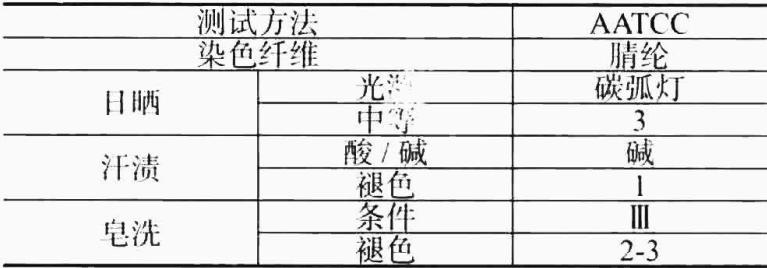 测试方法 AATCC
染色纤维 腈纶
日晒 光源 碳弧灯
中等 3
汗渍 酸 / 碱 碱
褪色 1
皂洗 条件 Ⅲ
褪色 2-3